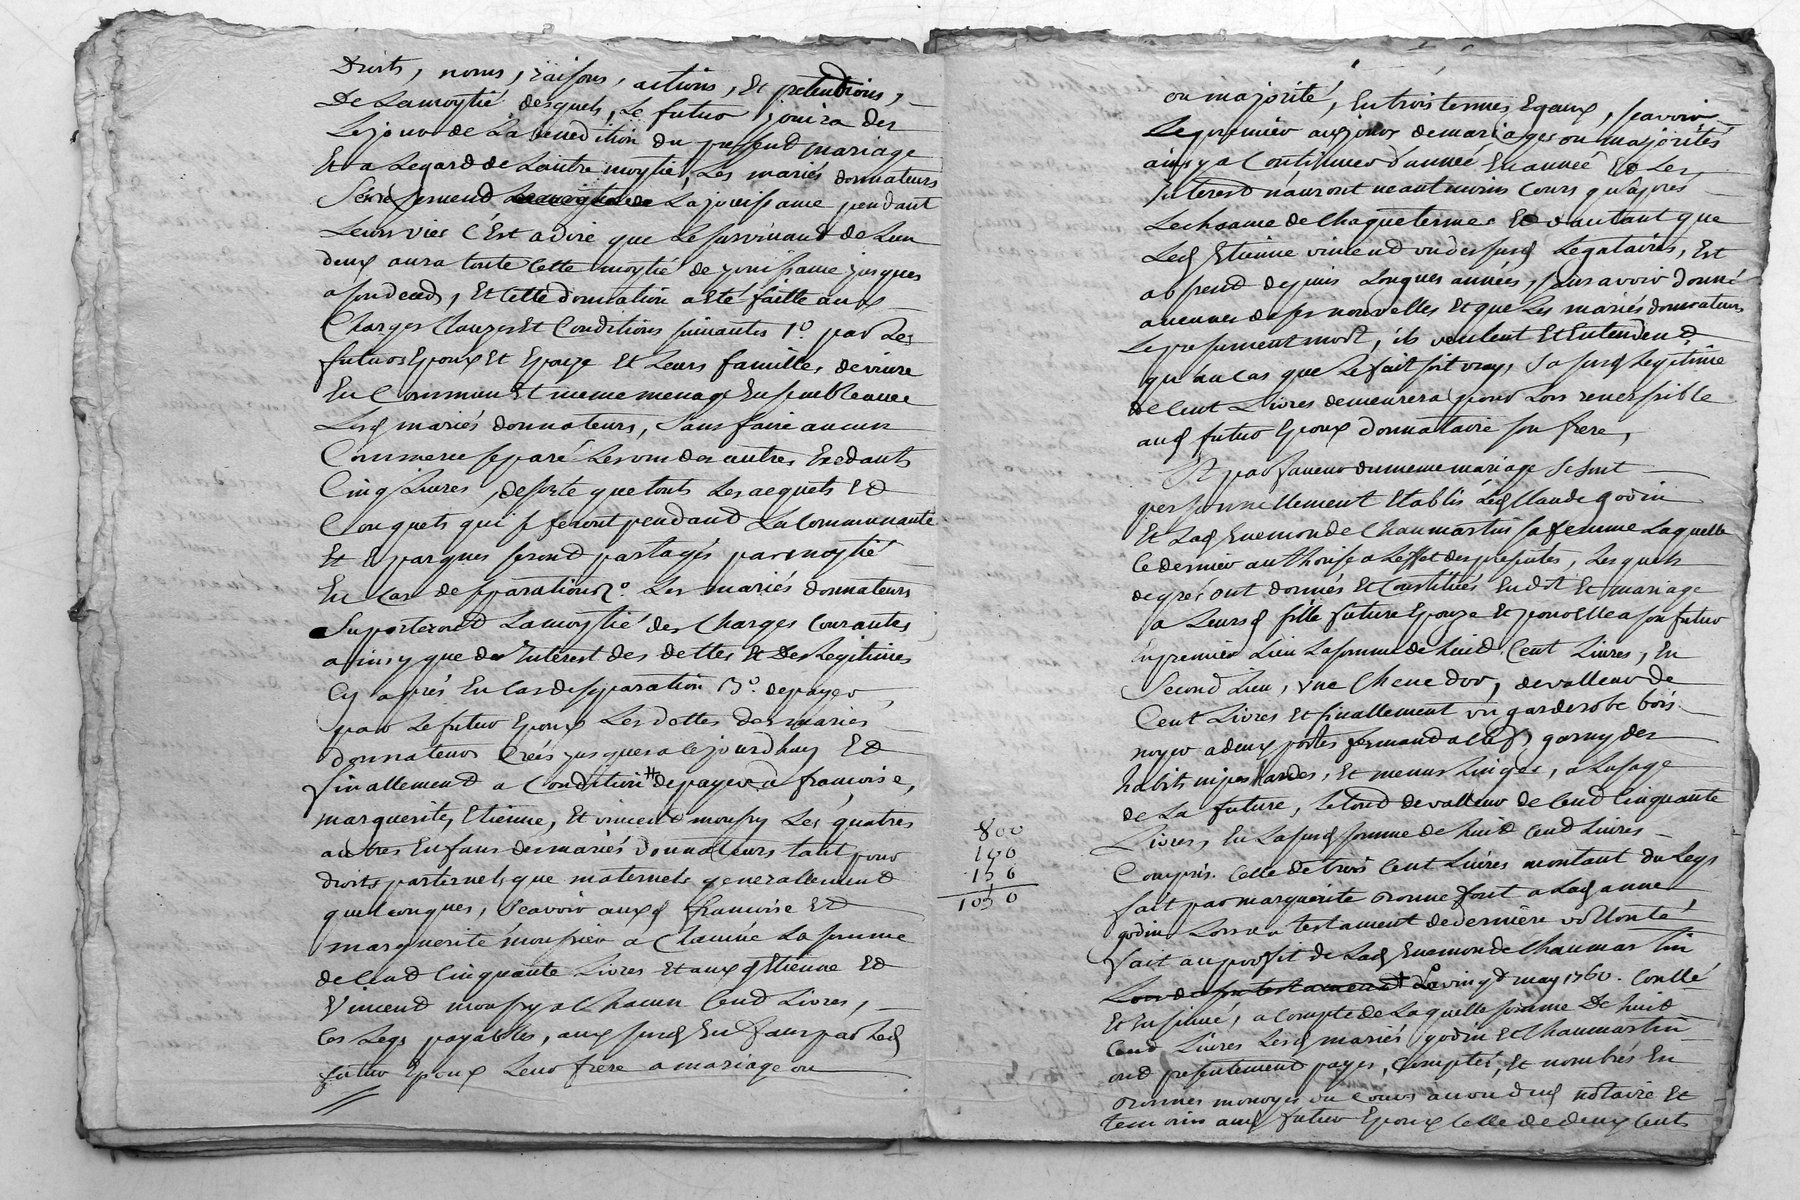 Droits, noms, raisons, actions, Et pretentions,
De Lamoytié desquels, Le futur jouira des
Lejour de La benediction du present mariage
Et a Legard de Lautre moytié, Les mariés donnateurs
Se reservent La jouissance pendant
Leurs vies C'Est adire que Le survivant de Lun
deux aura toute Cette moytié de jouissance jusques
a son deces, Et Cette donnation a Eté faitte aux
Charges Clauzes Et Conditions suivantes 1o. par Les
futurs Epoux Et Epouze Et Leurs famille, de vivre
En Commun Et meme menage Ensemble avec
Lesd mariés donnateurs, sans faire aucun
Commerce separé Les uns des autres Excedants
Cinq Livres, desorte que touts Les acquets Et
Conquets qui se feront pendant La Communauté
Et Epargnes seront partagés par moytié
En Cas de separation 2o. Les mariés donnateurs
Suporteront Lamoytié des Charges Courantes
ainsy que des Interest des dettes Et Des Legitimes
Cy aprés En Cas de separation 3o. de payer
par Le futur Epoux Les dettes des mariés
donnateurs Creés jusques a cejourdhuy Et
finallement a Condition de payer a francoise,
marguerite, Etienne, Et vincent monfry Les quatres
autres Enfans des mariés Donnateurs tant pour
droits paternels que maternels generallement
quelconques, Scavoir auxd francoise Et
marguerite a Chacune La somme
de Cent Cinquante Livres Et auxd Etienne Et
Vincent a Chacun Cent Livres,
Ces Legs payables, aux susd Enfans par Led
futur Epoux Leur frere a mariage ou
ou majorité, En trois termes Egaux, scavoir
Le premier aux jours de mariages ou majorités
ainsy a Continuer d'année En année Et Les
Interest n'auront neantmoins Cours qu'apres
Lechoance de Chaque terme Et d'autant que
Led Etienne vincent un des susd Legataires, Est
absent depuis Longues années, sans avoir donné
aucunes de ses nouvelles Et que Les mariés donnateurs
Le presument mort, ils veulent Et Entendent
qu'au Cas que Le fait soit vray, sa susd Legitime
de Cent Livres demeurera pour Lors reversible
aud futur Epoux donnataire son frere,
Et par faveur du meme mariage Se sont
personnellement Etablis Led Claude godin
Et Lad Enemonde Chaumartin sa femme Laquelle
Ce dernier authorise a Leffet des presentes, Lesquels
degrés ont donnés Et Constitués En dot Et mariage
a Leursd fille future Epouze Et pour Elle a son futur
En premier Lieu La somme de huit Cent Livres, En
Second Lieu, une Chene dor, de valleur de
Cent Livres Et finallement un garderobe bois
noyer a deux portes fermant a Clef, garny des
habits nipes hardes, Et menus Linges, a Lusage
de La future, Le tout de valleur de Cent Cinquante
Livres, En La susd somme de huit Cent Livres
800
100
150
1050
Compris Celle de trois Cent Livres montant du Legs
fait par marguerite a Lad anne
godin Lors testament de derniere vollonté
fait au profit de Lad Enemonde Chaumartin
Le vingt may 1760. Conllé
Et Insinué, a Compte de Laquelle somme De huit
Cent Livres Lesd mariés godin Et Chaumartin
ont presentement payes, Comptés, Et nombrés En
bonnes monoyes du Cours au vu dud notaire Et
temoins aud futur Epoux Celle de deux Cents